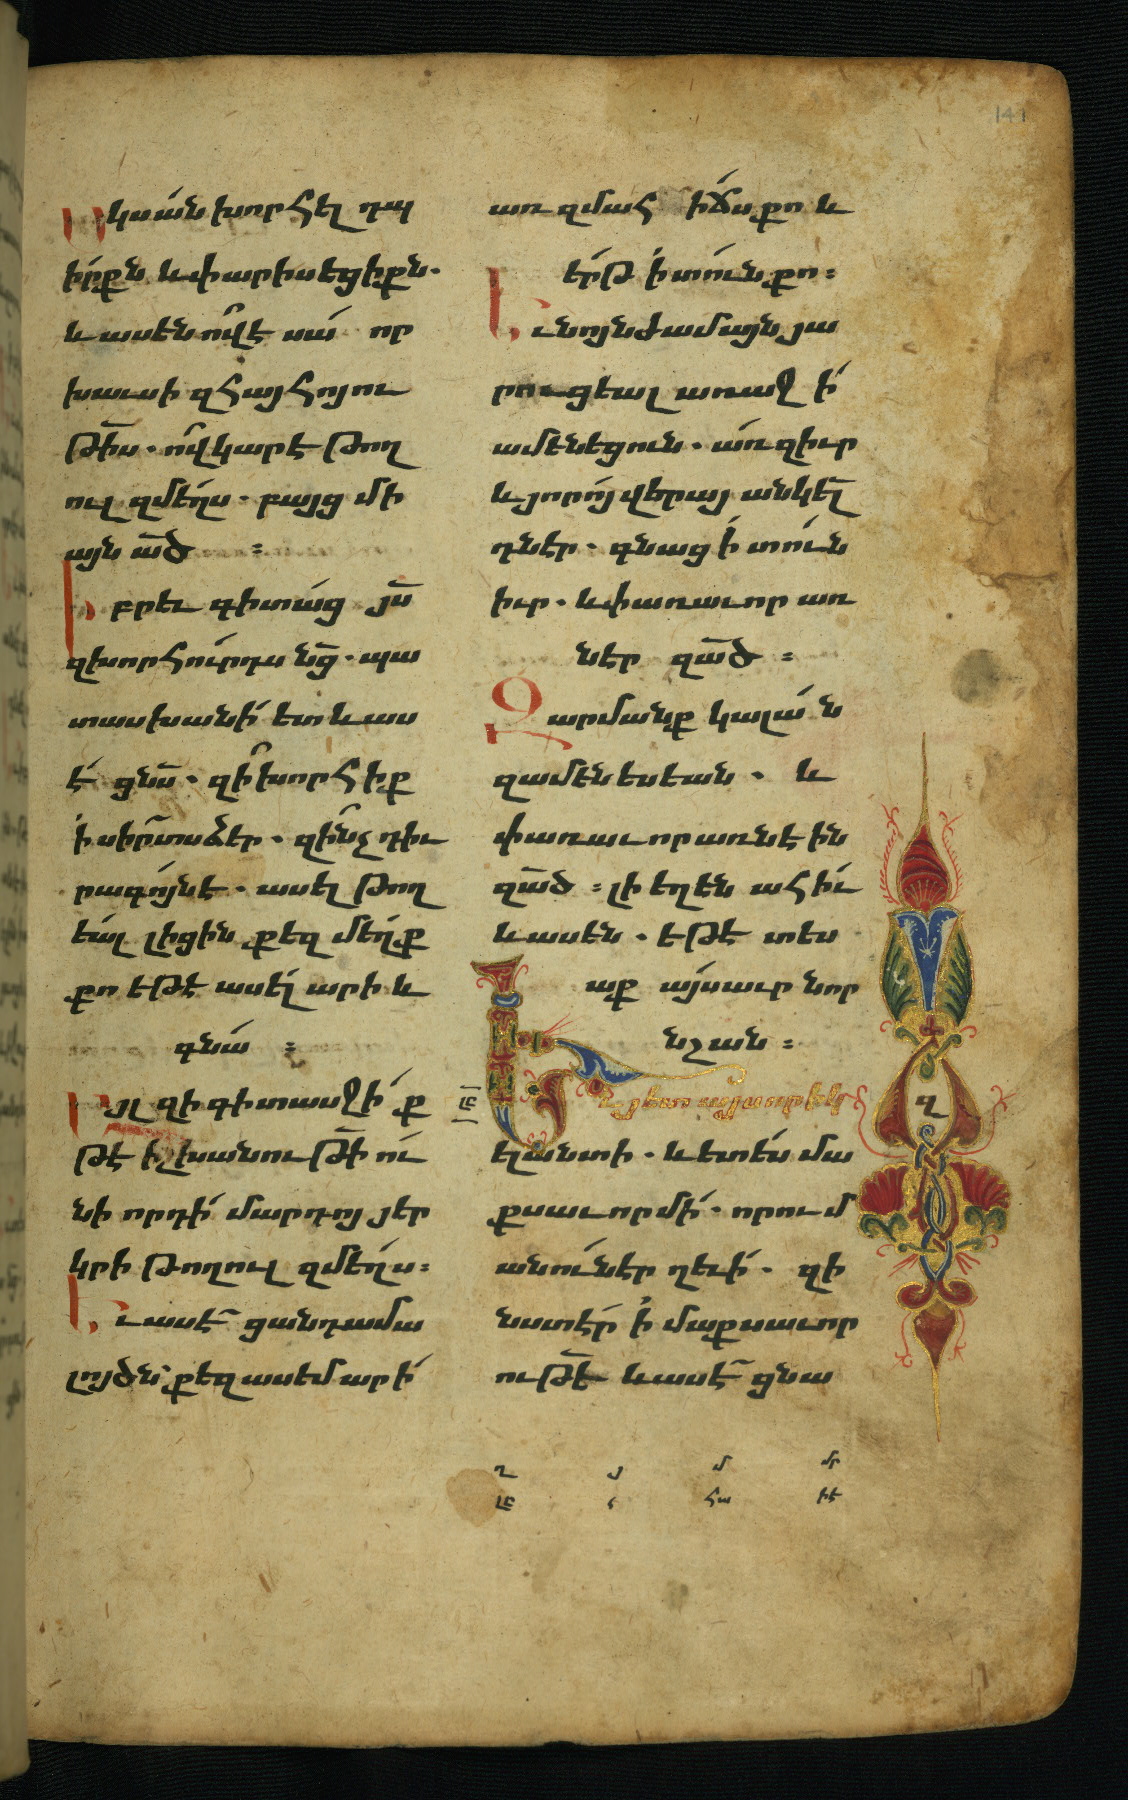 Սկսան խորհել դպ
իրքն և փարիսեցիքն.
և ասէն ո՞վ է սա որ
խաւսի զհայհոյու
թի̅ս. ո՞վ կարէ թող
ուլ զմեղս. բայց մի
այն ա̅ծ ։
Իբրեւ գիտաց յս̅
զխորհուրդս նց̅. պա
տասխանի ետ և աս
է ցնս̅. զի՞ խորհիք
ի սիրտս ձեր. զի՞նչ դիւ
րագոյն է. ասել թող
եալ լիցին քեզ մեղք
քո եթէ ասել արի և
գնա ։
Այլ զի գիտասջիք
թէ իշխանութի̅ ու
նի որդի մարդոյ յեր
կրի թողուլ զմեղս։
Եւ ասէ ցանդամա
լոյծն՝ քեզ ասեմ արի
առ զմահիճս քո և
երթ ի տուն քո։
Եւ նոյնժամայն յա
րուցեալ առաջի
ամենեցուն. առ զիւր
և յորոյ վերայ անկել
դնէր. գնաց ի տուն
իւր. և փառաւոր առ
նէր զա̅ծ ։
Զարմանք կալան
զամենեսեան. և
փառաւոր առնէին
զա̅ծ ։ լի եղեն ահիւ
և ասեն. եթէ տես
աք այսաւր նոր
նշան ։
լբ
Եւ յետ այսորիկ
ել անտի. և ետես մա
քսաւոր մի. որում
անուն էր ղեւի. զի
նստէր ի մաքսաւոր
ութե̅ և ասէ ցնա
զ
ղ յ մ մր
լբ հա իէ
141